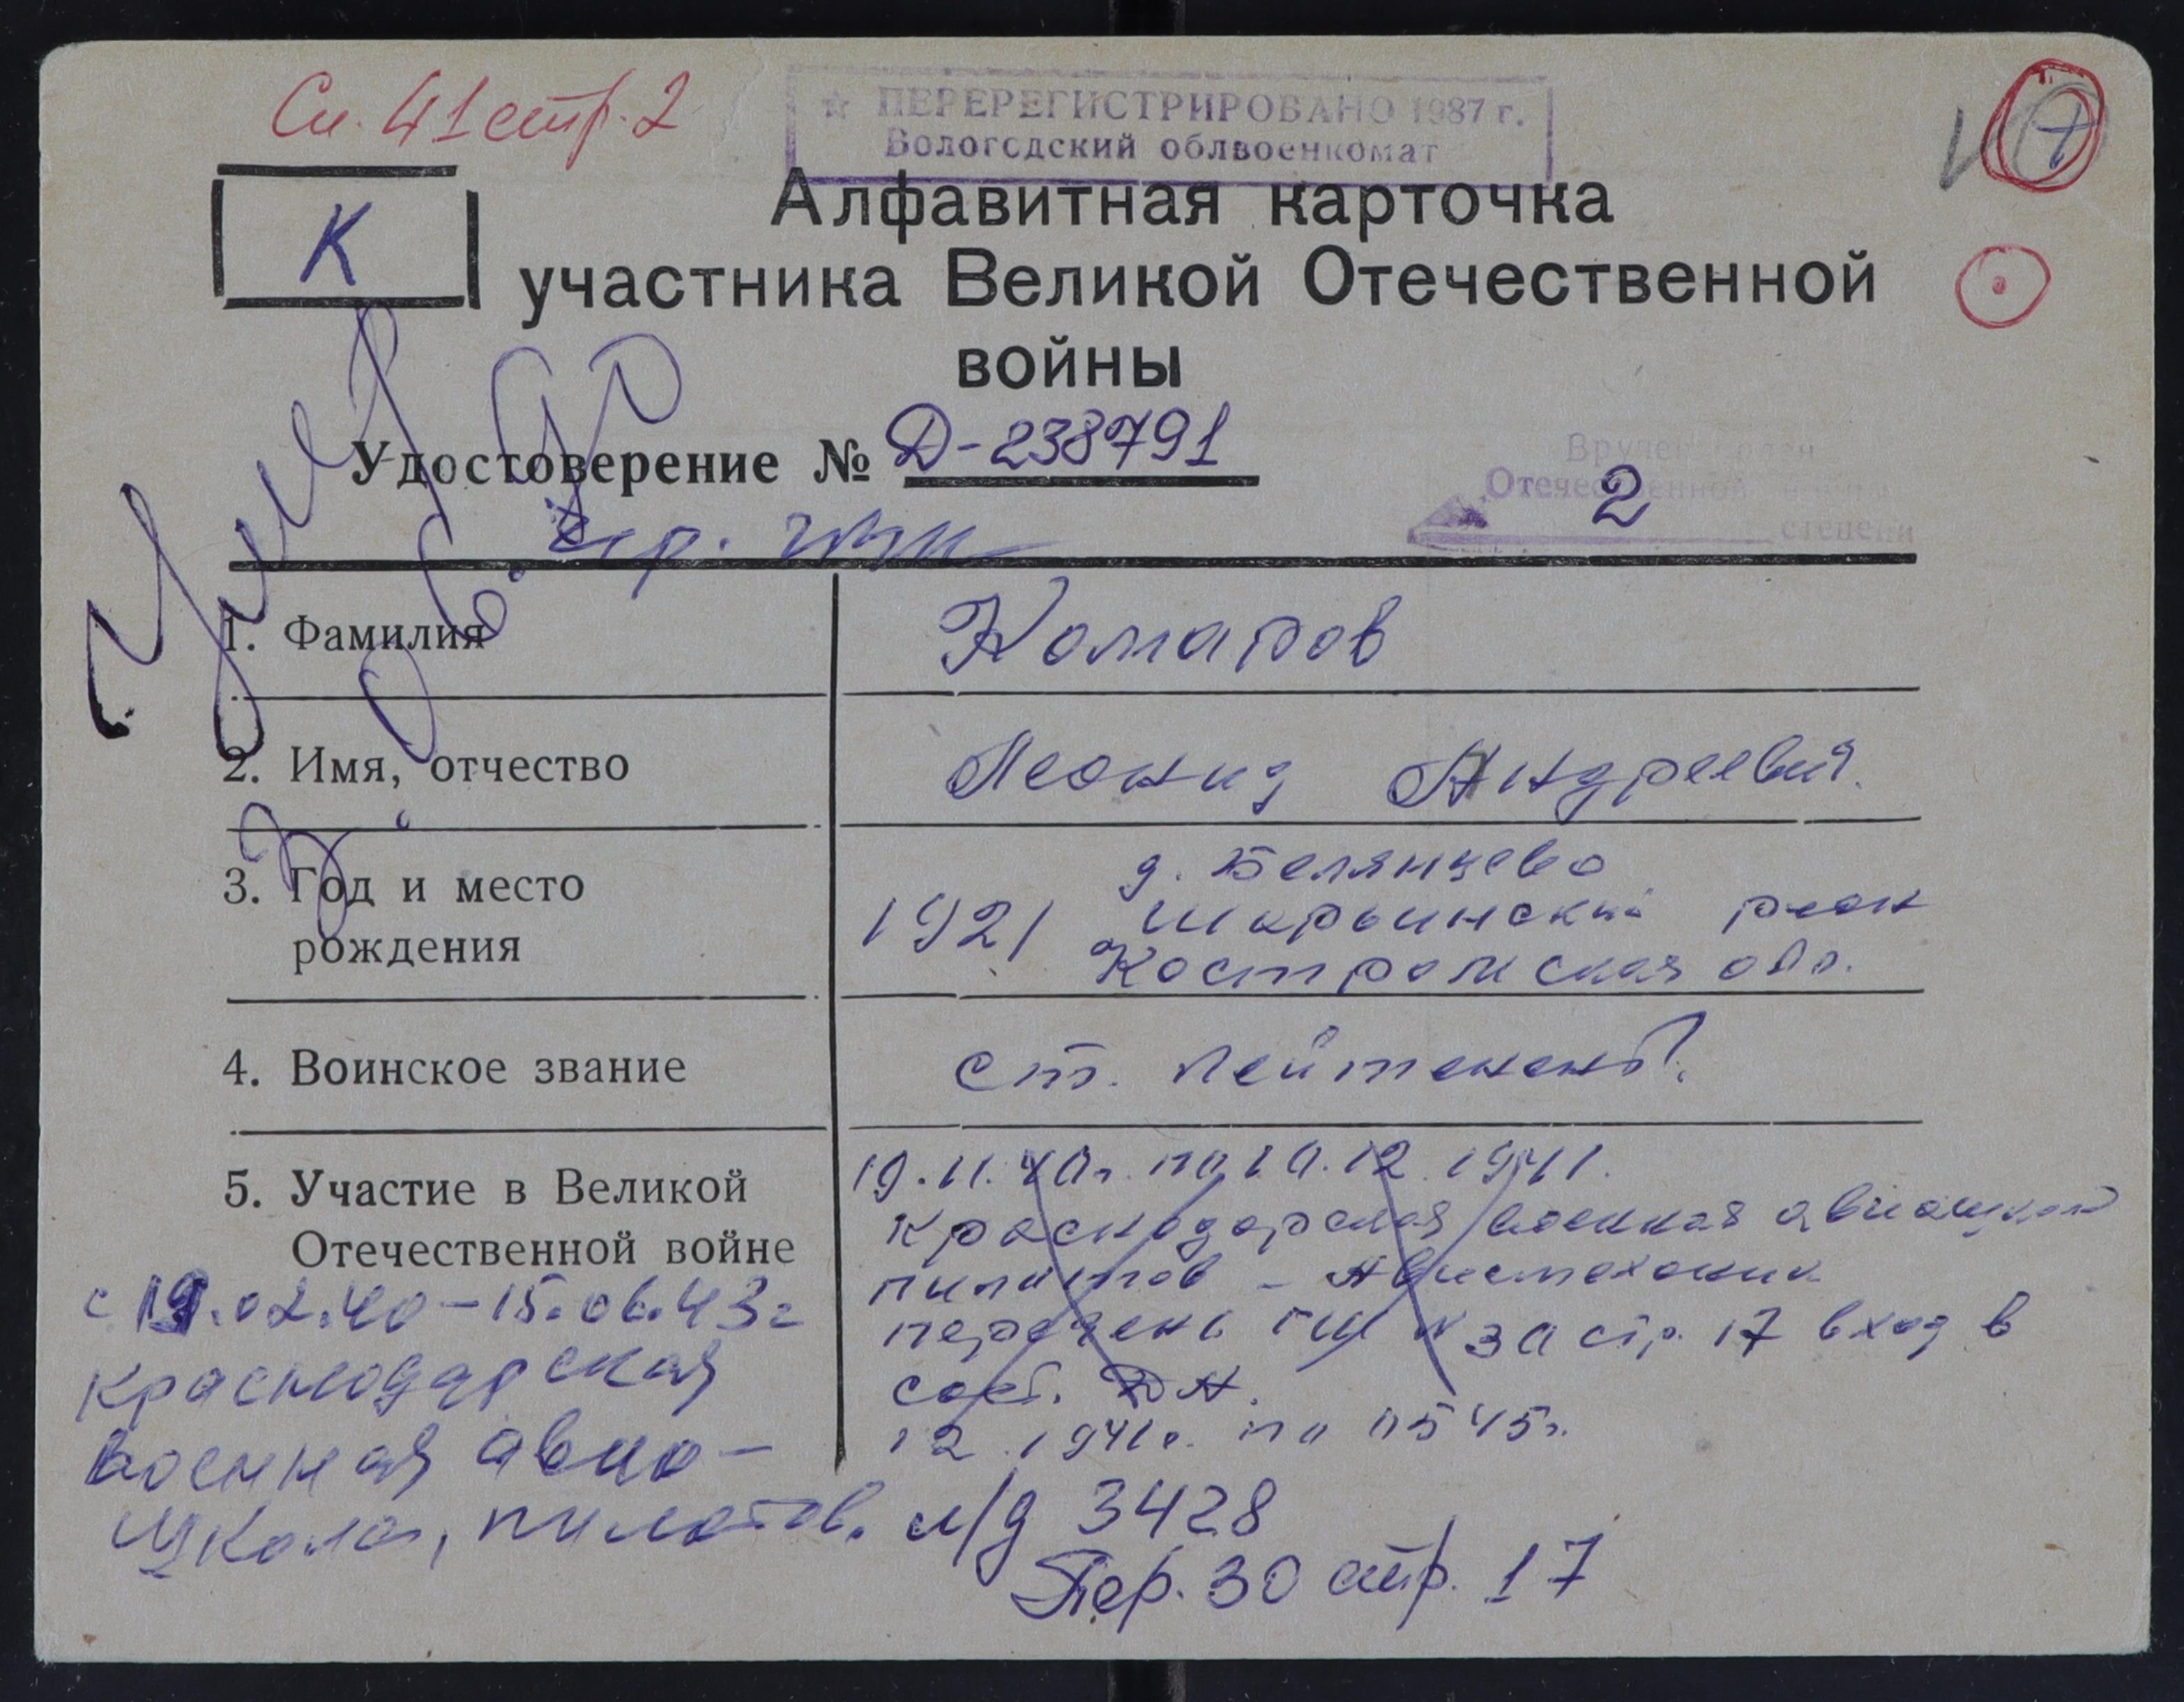 Сп. 41 стр. 2
☆ ПЕРЕРЕГИСТРИРОВАНО 1987 г.
Вологодский облвоенкомат
К
Алфавитная карточка
участника Великой Отечественной
войны
Удостоверение № Д-238791
Вручен орден
Отечественной войны
2 степени
Умер
1. Фамилия Комаров
2. Имя, отчество Леонид Андреевич.
3. Год и место рождения 1921 д. Белянцево
Шарьинский район
Костромская обл.
4. Воинское звание ст. лейтенант.
5. Участие в Великой
Отечественной войне
с 19.02.40 – 15.06.43г
Краснодарская
военная авиа-
школа, пилотов.
19.11.40г. по 10.12.1941.
Краснодарская военная
пилотов – Авиамеханик
перечень ГШ № 30 стр. 17 вход в
сост. ДА.
12.1941г. по 0545г.
л/д 3428
Пер. 30 стр. 17